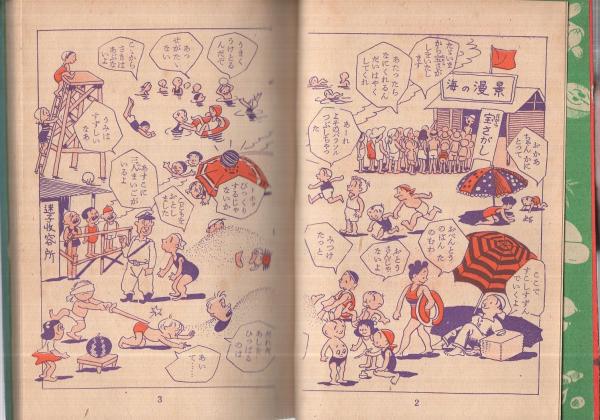 海の漫景
たゞいま
から宝さがし
をいたし
ます
宝さがし
あたったら
なにくれるん
だいはやく
してくれ
あーれ
よそのパラソル
つぶしちゃっ
た
おかあ
ちゃんかに
とって
ここで
すこしすずん
でいくよ
おべんとう
のばんた
のむわ
おとう
さんじゃ
ない
みつけ
たっと
2
うまく
うけとる
んだで
あっ
せがたゝ
ない
こゝから
さきは
あぶな
いよ
うみは
すずしい
なあ
あすこに
三人まいごが
いるよ
迷子收容所
トホッ
びっくり
するじゃ
ないか
こどもを
おとし
ました
だれだ
あしを
ひっぱる
のは
あい
て……
3